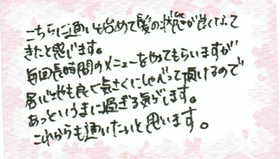 こちらに通い始めて髪の状態が良くなって
きたと感じます。
毎回長時間のメニューをやってもらいますが
居心地も良く気さくにしゃべって頂けるので
あっというまに過ぎる気がします。
これからも通いたいと思います。